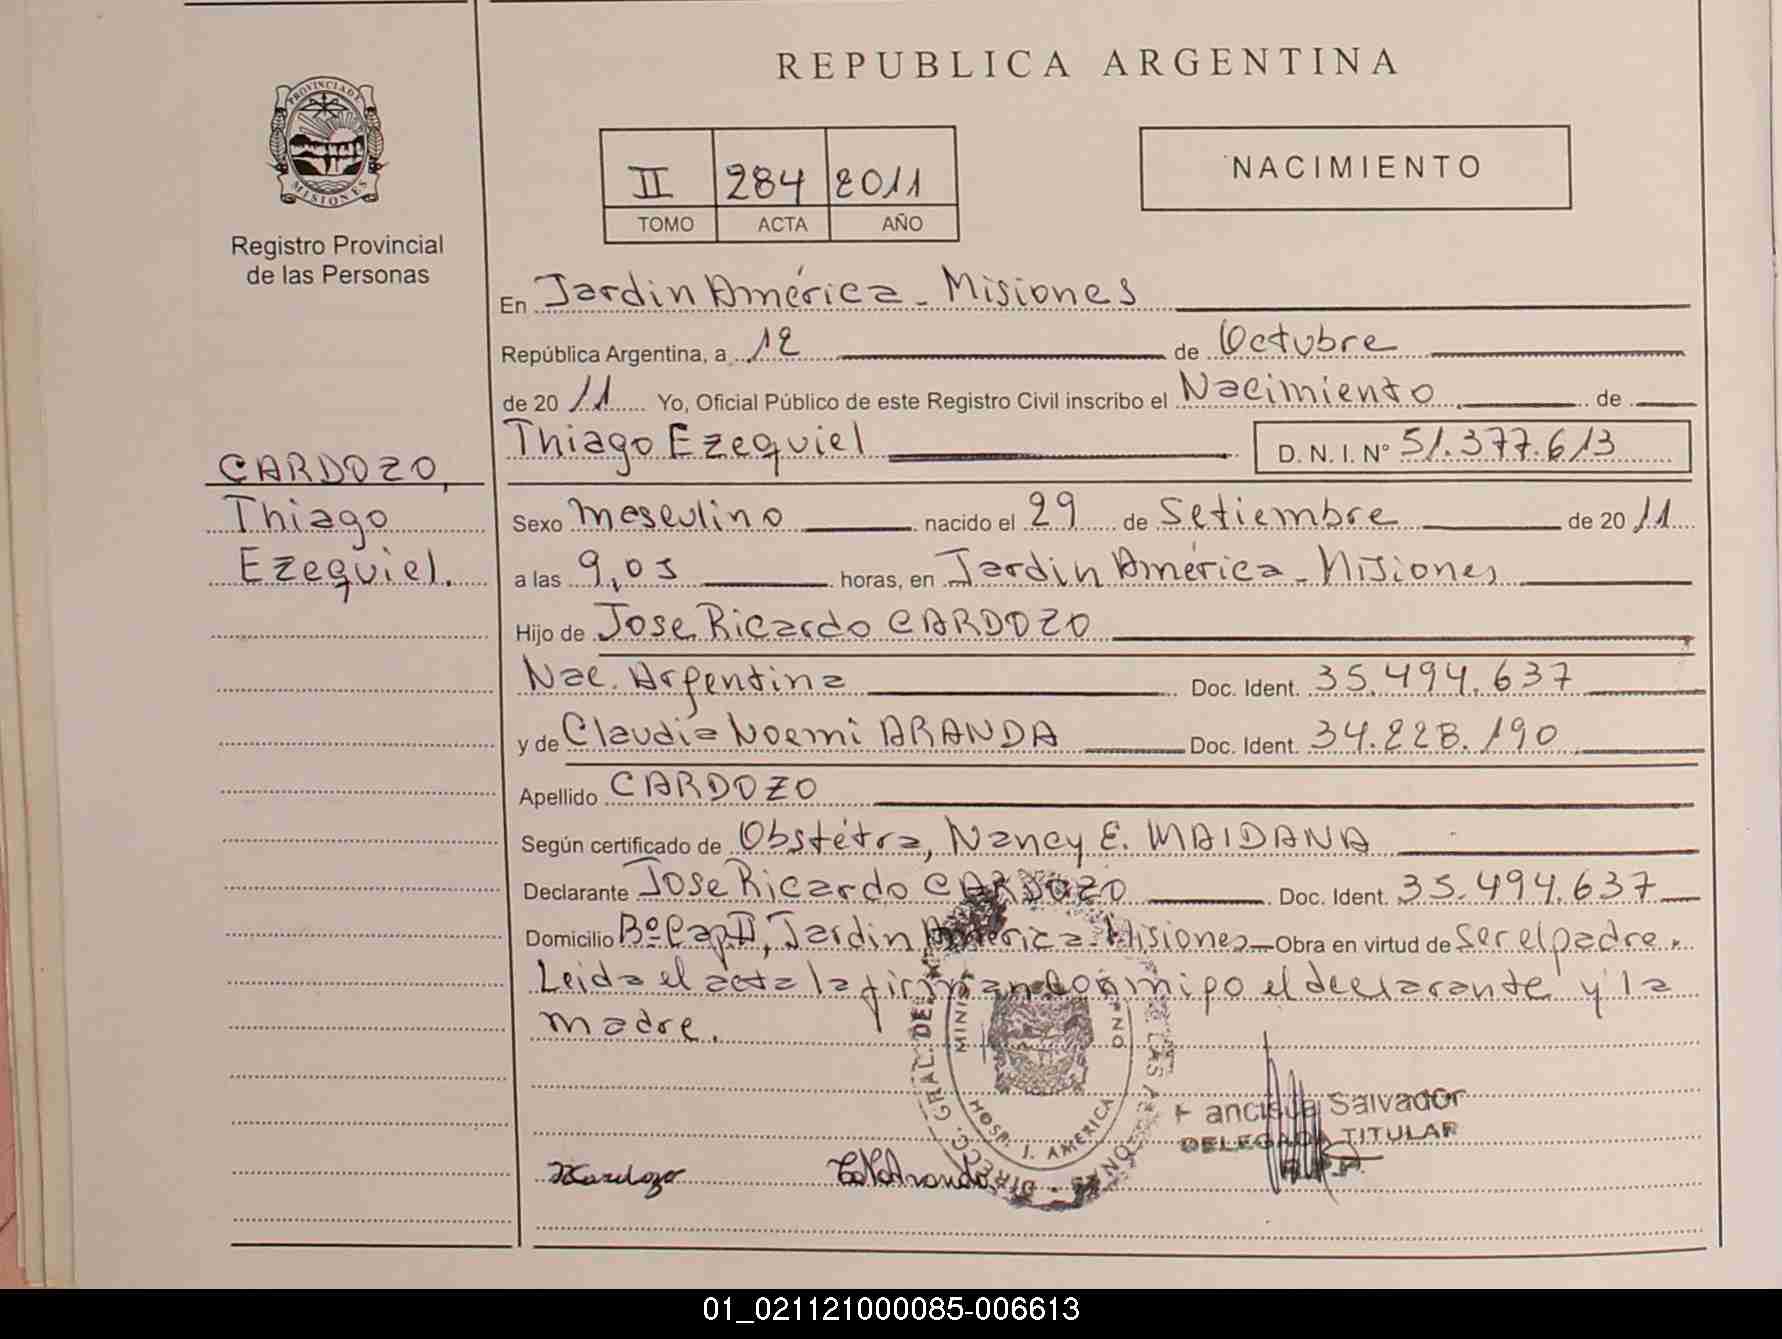 REPUBLICA ARGENTINA
PROVINCIA DE MISIONES
Registro Provincial
de las Personas
II 284 2011
TOMO ACTA AÑO
NACIMIENTO
CARDOZO,
Thiago
Ezequiel.
En Jardin América - Misiones
República Argentina, a 12 de Octubre
de 2011 Yo, Oficial Público de este Registro Civil inscribo el Nacimiento de
Thiago Ezequiel D. N. I. Nº 51.377.613
Sexo Masculino nacido el 29 de Setiembre de 2011
a las 9,05 horas, en Jardin América - Misiones
Hijo de Jose Ricardo CARDOZO
Nac. Argentina Doc. Ident. 35.494.637
y de Claudia Noemi ARANDA Doc. Ident. 34.228.190
Apellido CARDOZO
Según certificado de Obstétra, Nancy E. MAIDANA
Declarante Jose Ricardo CARDOZO Doc. Ident. 35.494.637
Domicilio Bº Cap II, Jardin América - Misiones Obra en virtud de ser el padre.
Leida el acta la firman conmigo el declarante y la
madre.
DIRECC. GRAL. DEL
HOSP. J. AMERICA
Salvador
DELEGADA TITULAR
R.P.P.
01_021121000085-006613